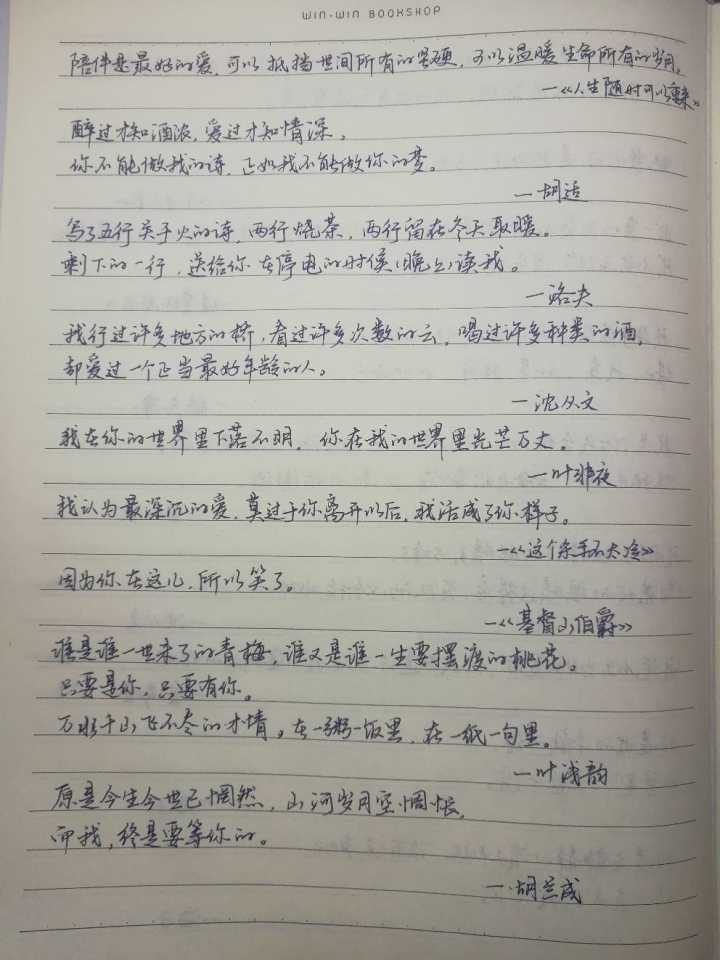 WIN-WIN BOOKSHOP
陪伴是最好的爱，可以抵挡世间所有的坚硬，可以温暖生命所有的岁月。
—《人生随时可以重来》
醉过才知酒浓，爱过才知情深。
你不能做我的诗，正如我不能做你的梦。
—胡适
写了五行关于火的诗，两行烧茶，两行留在冬天取暖。
剩下的一行，送给你在停电的时候(晚上)读我。
—洛夫
我行过许多地方的桥，看过许多次数的云，喝过许多种类的酒，
却爱过一个正当最好年龄的人。
—沈从文
我在你的世界里下落不明，你在我的世界里光芒万丈。
—叶非夜
我认为最深沉的爱，莫过于你离开以后，我活成了你样子。
—《这个杀手不太冷》
因为你在这儿，所以笑了。
—《基督山伯爵》
谁是谁一世来了的青梅，谁又是谁一生要摆渡的桃花。
只要是你，只要有你。
万水千山飞不尽的才情。在一粥一饭里，在一纸一句里。
—叶浅韵
原是今生今世已惘然，山河岁月空惆怅，
而我，终是要等你的。
—胡兰成